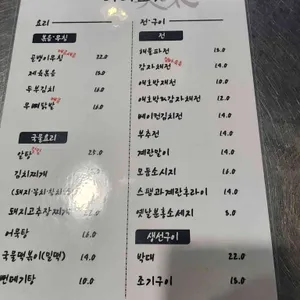 요리
볶음·무침
골뱅이무침 22.0
제육볶음 18.0
두부김치 16.0
무뼈닭발 16.0
국물요리
알탕 23.0
김치찌개 14.0
돼지고추장찌개
어묵탕 16.0
국물떡볶이(밀떡) 14.0
번데기탕 10.0
전·구이
전
해물파전 15.0
감자채전 14.0
애호박채전 10.0
애호박&감자채전 12.0
베이컨김치전 14.0
부추전 14.0
계란말이 14.0
모둠소시지 15.0
스팸과계란후라이 13.0
옛날분홍소세지 5.0
생선구이
박대 22.0
조기구이 15.0